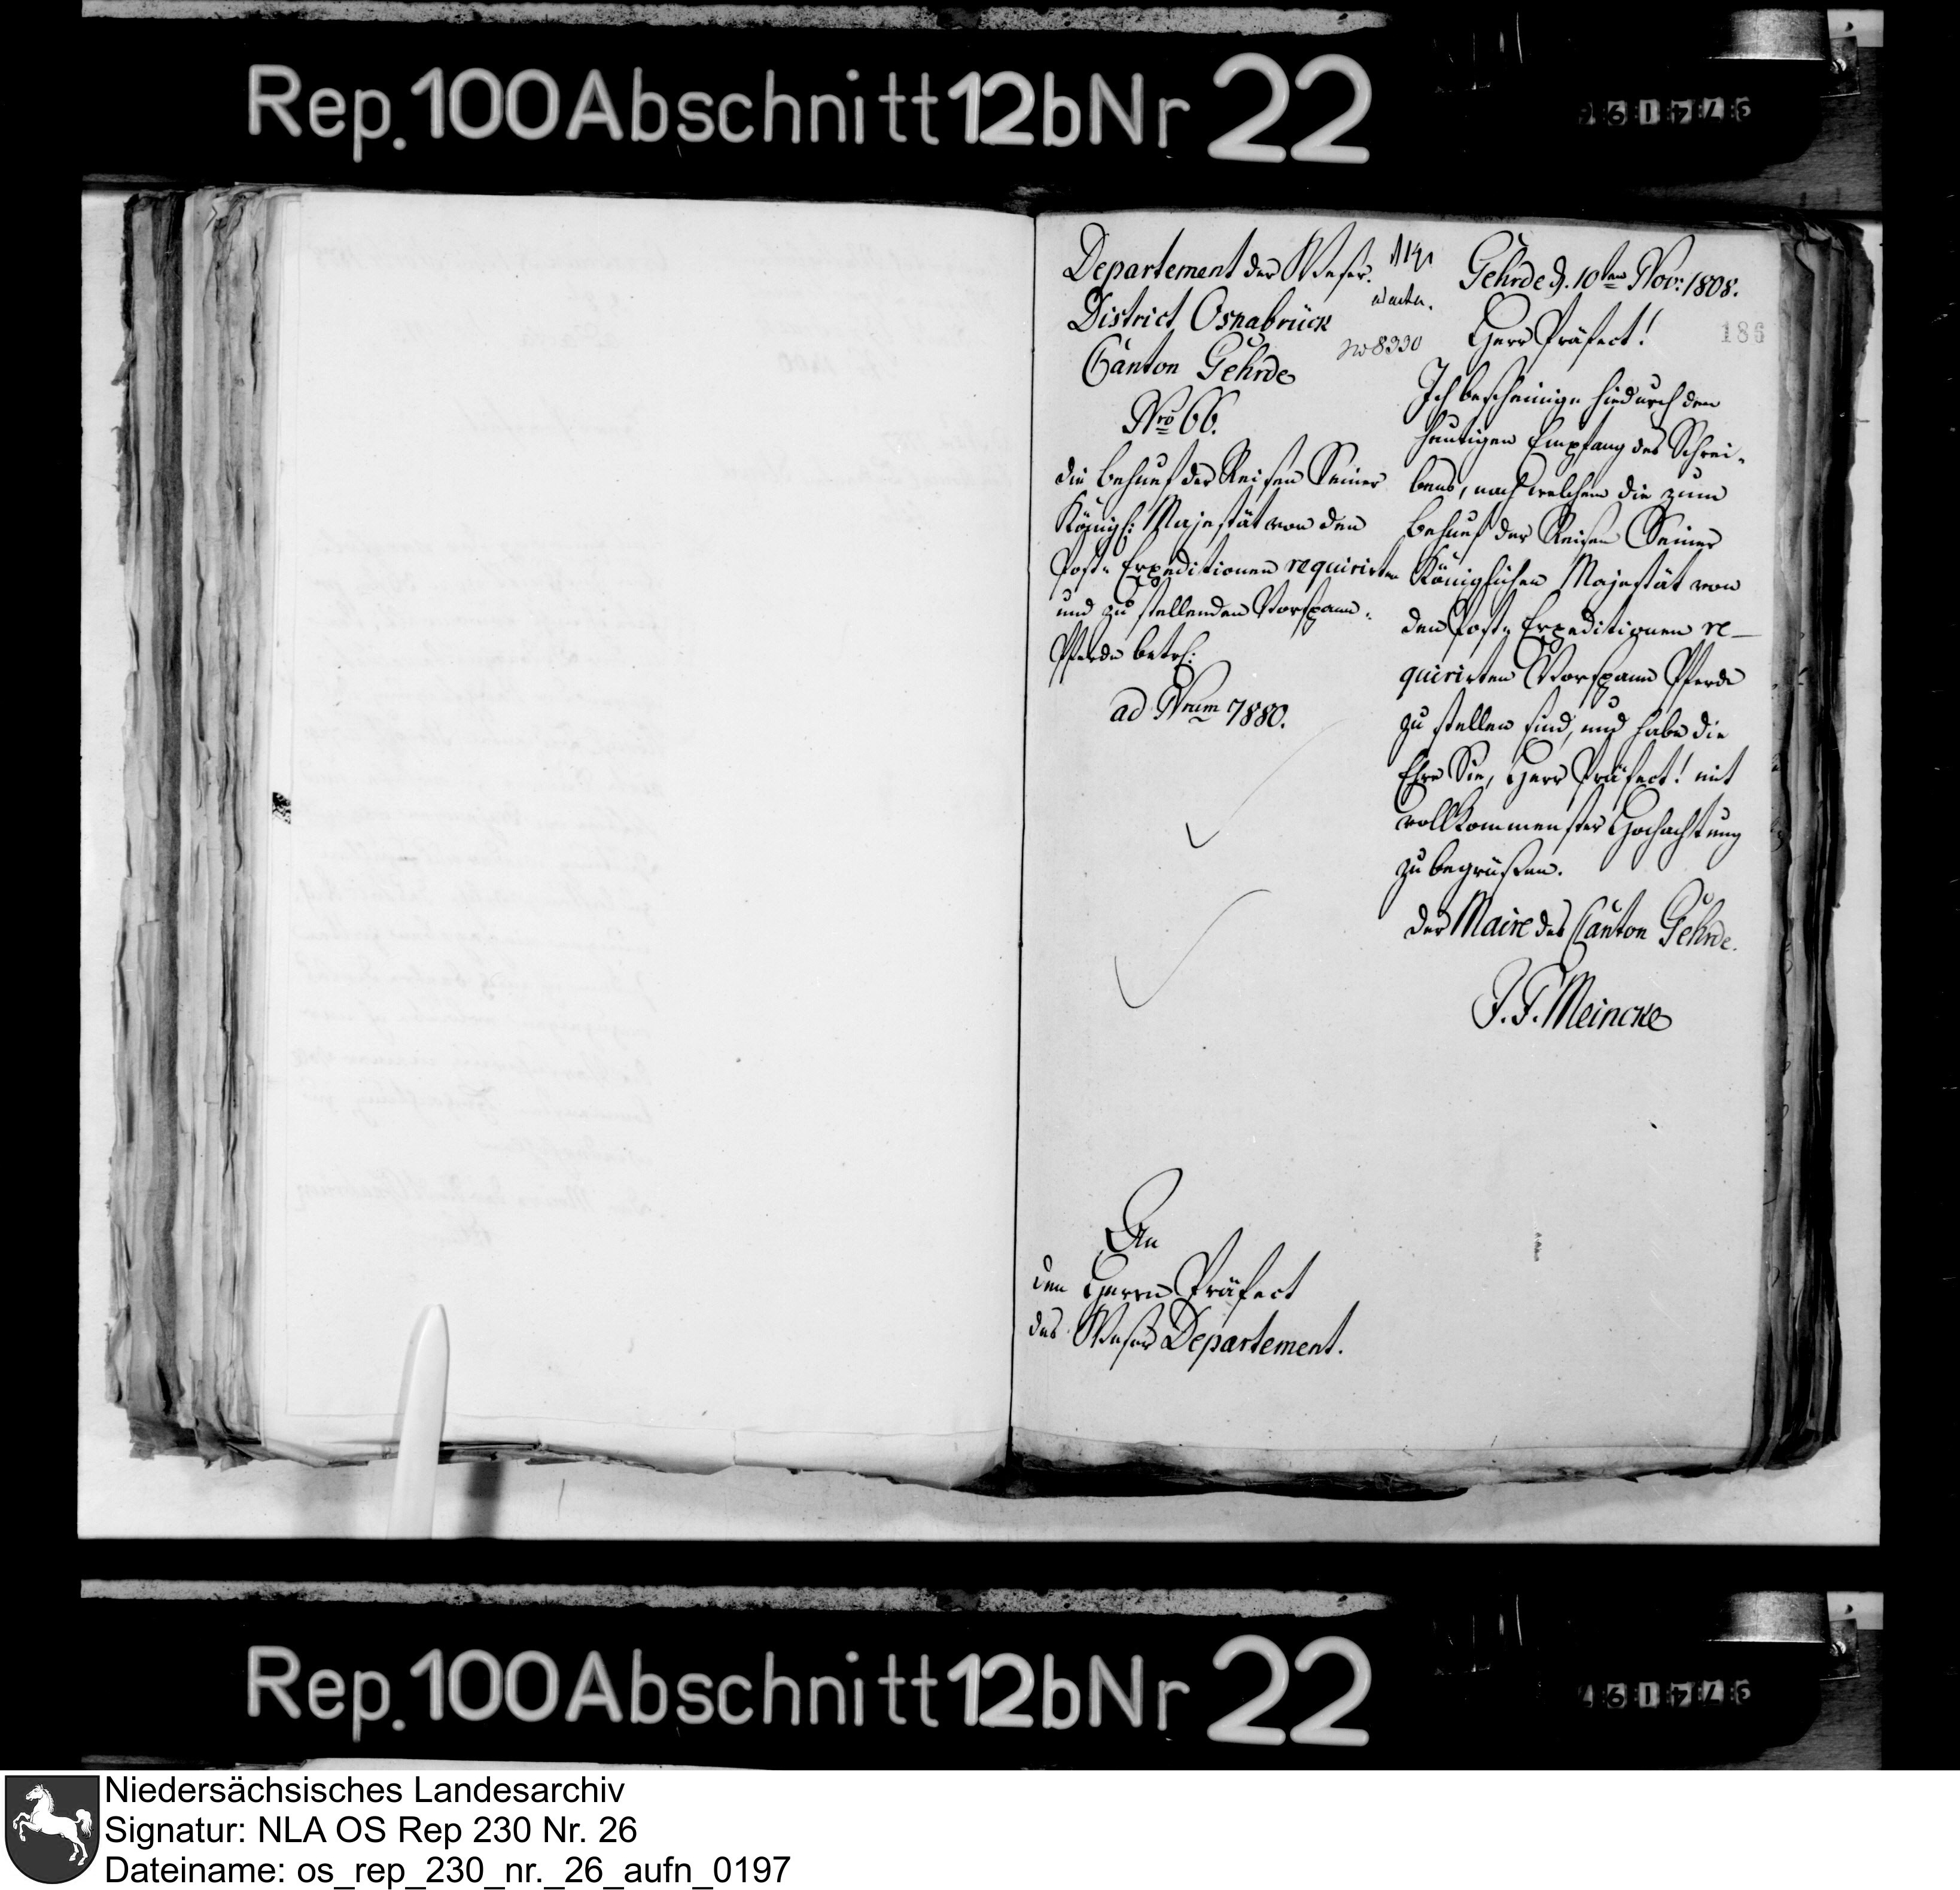 Rep. 100 Abschnitt 12b Nr 22
Departement der Weser.
District Osnabrück
Canton Gehrde
Nro 66.
die behuef der Reisen Seiner
Königl: Majestät von den
Post-Expeditionen requirirten
und zu stellenden Vorspann-
Pferde betrf:
ad Nrum 7880.
No 8330
Gehrde d. 10ten Nov: 1808.
186
Herr Präfect!
Ich bescheinige hiedurch den
heutigen Empfang des Schrei-
bens, nach welchem die zum
behuef der Reisen Seiner
Königlichen Majestät von
den Post-Expeditionen re-
quirirten Vorspann Pferde
zu stellen sind, und habe die
Ehre Sie, Herr Präfect! mit
vollkommenster Hochachtung
zu begrüßen.
Der Maire des Canton Gehrde.
J. F. Meincke
An
den Herrn Präfect
des Weser Departement.
Rep. 100 Abschnitt 12b Nr 22
Niedersächsisches Landesarchiv
Signatur: NLA OS Rep 230 Nr. 26
Dateiname: os_rep_230_nr._26_aufn_0197